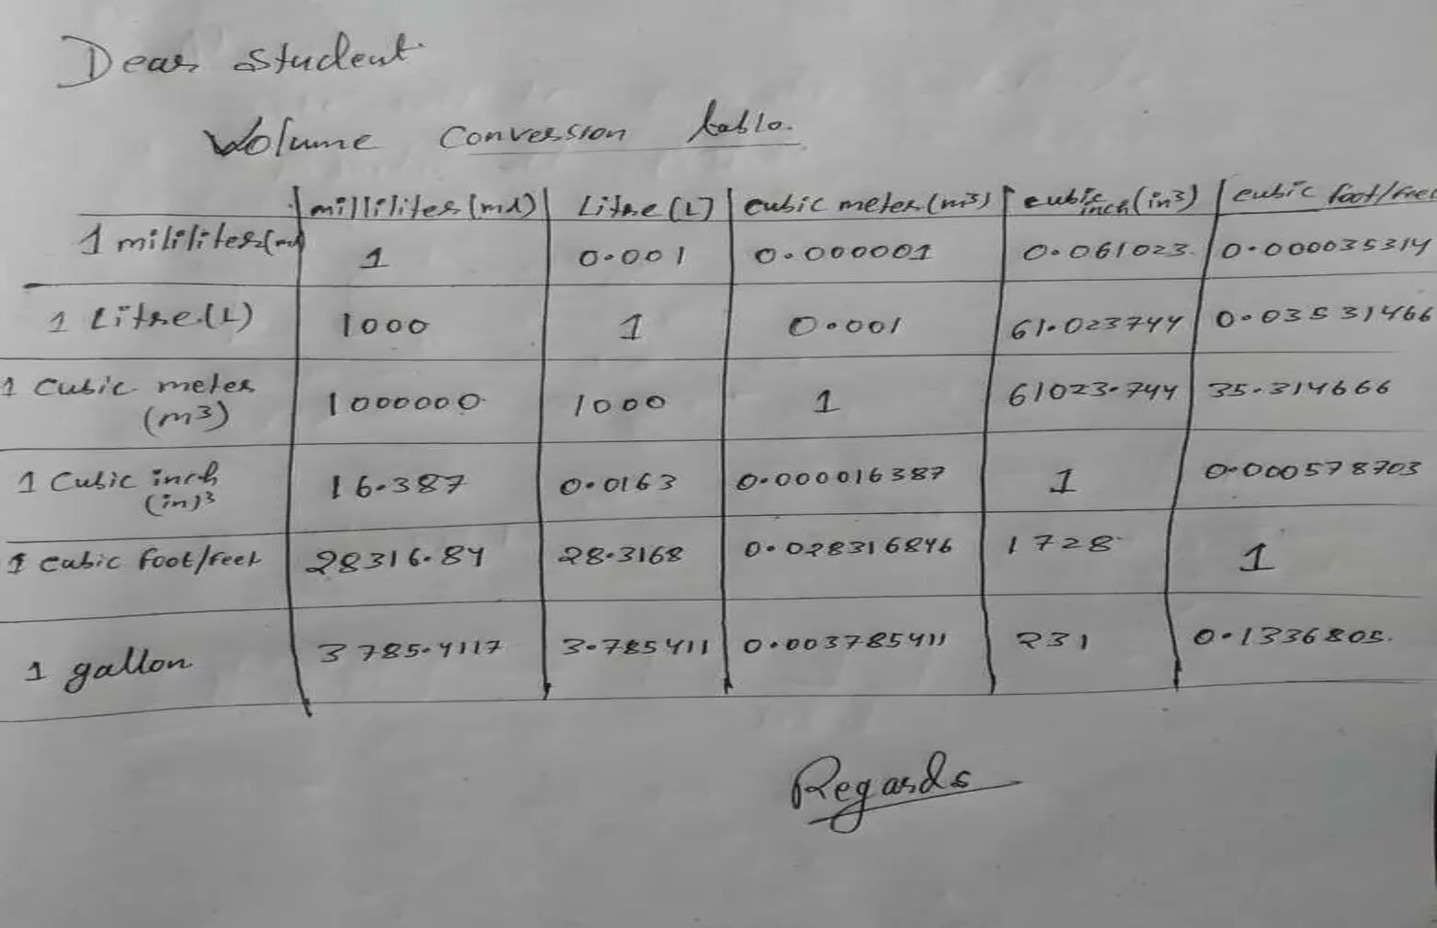 Dear student.
Volume conversion table.
milliliter (ml) Litre (L) cubic meter (m3) cubic inch (in3) cubic foot/feet
1 mililiter (ml) 1 0.001 0.000001 0.061023 0.000035314
1 Litre (L) 1000 1 0.001 61.023744 0.03531466
1 Cubic meter (m3) 1000000 1000 1 61023.744 35.314666
1 Cubic inch (in)3 16.387 0.0163 0.000016387 1 0.000578703
1 cubic foot/feet 28316.84 28.3168 0.028316846 1728 1
1 gallon 3785.4117 3.785411 0.003785411 231 0.1336805
Regards